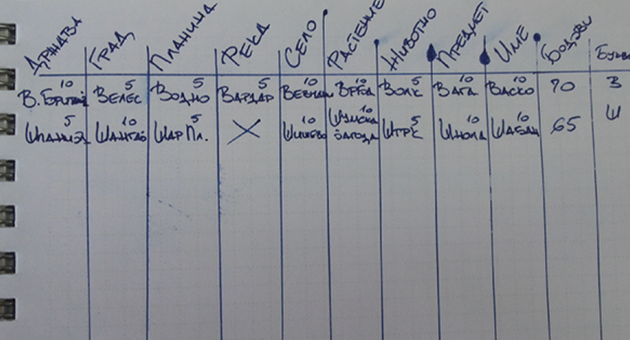 ДРЖАВА ГРАД ПЛАНИНА РЕКА СЕЛО РАСТЕНИЕ ЖИВОТНО ПРЕДМЕТ ИМЕ БОДОВИ
10 5 5 5 10 10 5 10 10
ВЕЛЕС ВОДНО ВАРДАР ВРБА ВОЛК ВАГА ВАСКО 70 В
5 10 5 10 10 5 10 10
ШАНГАЈ ШАР ПЛ. X ШУМСКА ЈАГОДА ШТРК ШНОЛА ШАБАН 65 Ш